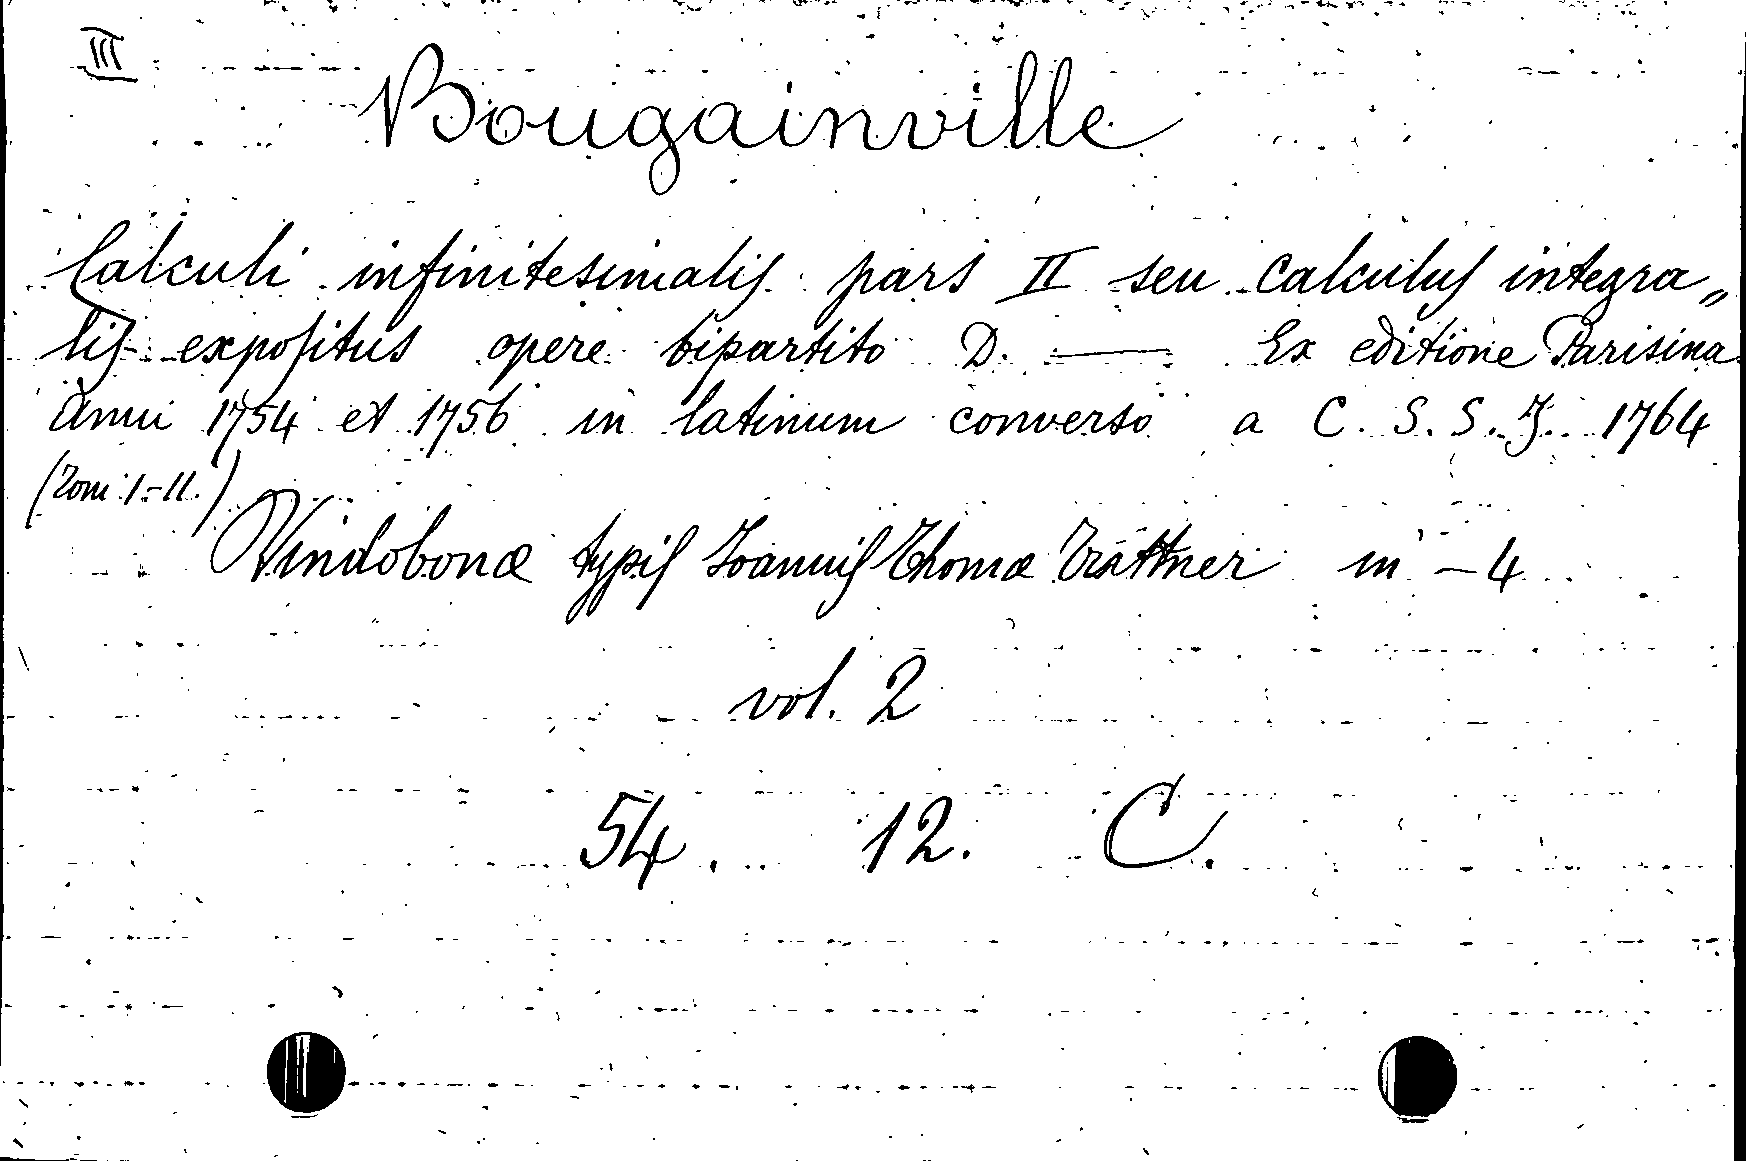 III
Bougainville
Calculi infinitesimalis pars II seu calculus integra„
lis expositus opere bipartito D. —— Ex editione Parisina
anni 1754 et 1756 in latinum converso a C. S. S. J. 1764
(Tomi I-II.)
Vindobonæ typis Joannis Thomæ Trattner in -4
vol. 2
54. 12. C.